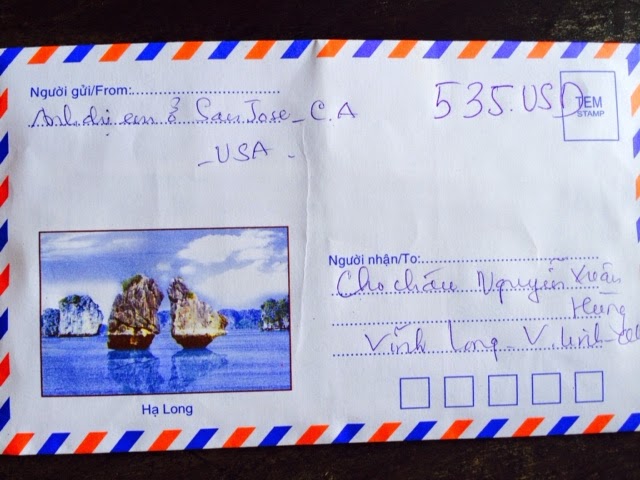 Người gửi/From:
Anh chị em ở San Jose_ C.A
_ USA .
535.USD
TEM
STAMP
Hạ Long
Người nhận/To:
Cho cháu Nguyễn Xuân
Hùng
Vĩnh Long_ V.Linh-